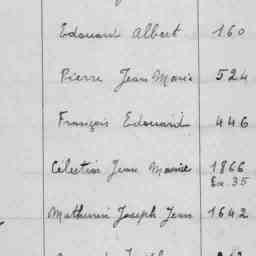 Edouard Albert 160
Pierre Jean Marie 524
François Edouard 446
Célestin Jean Marie 1866
Ex. 35
Mathurin Joseph Jean 1642